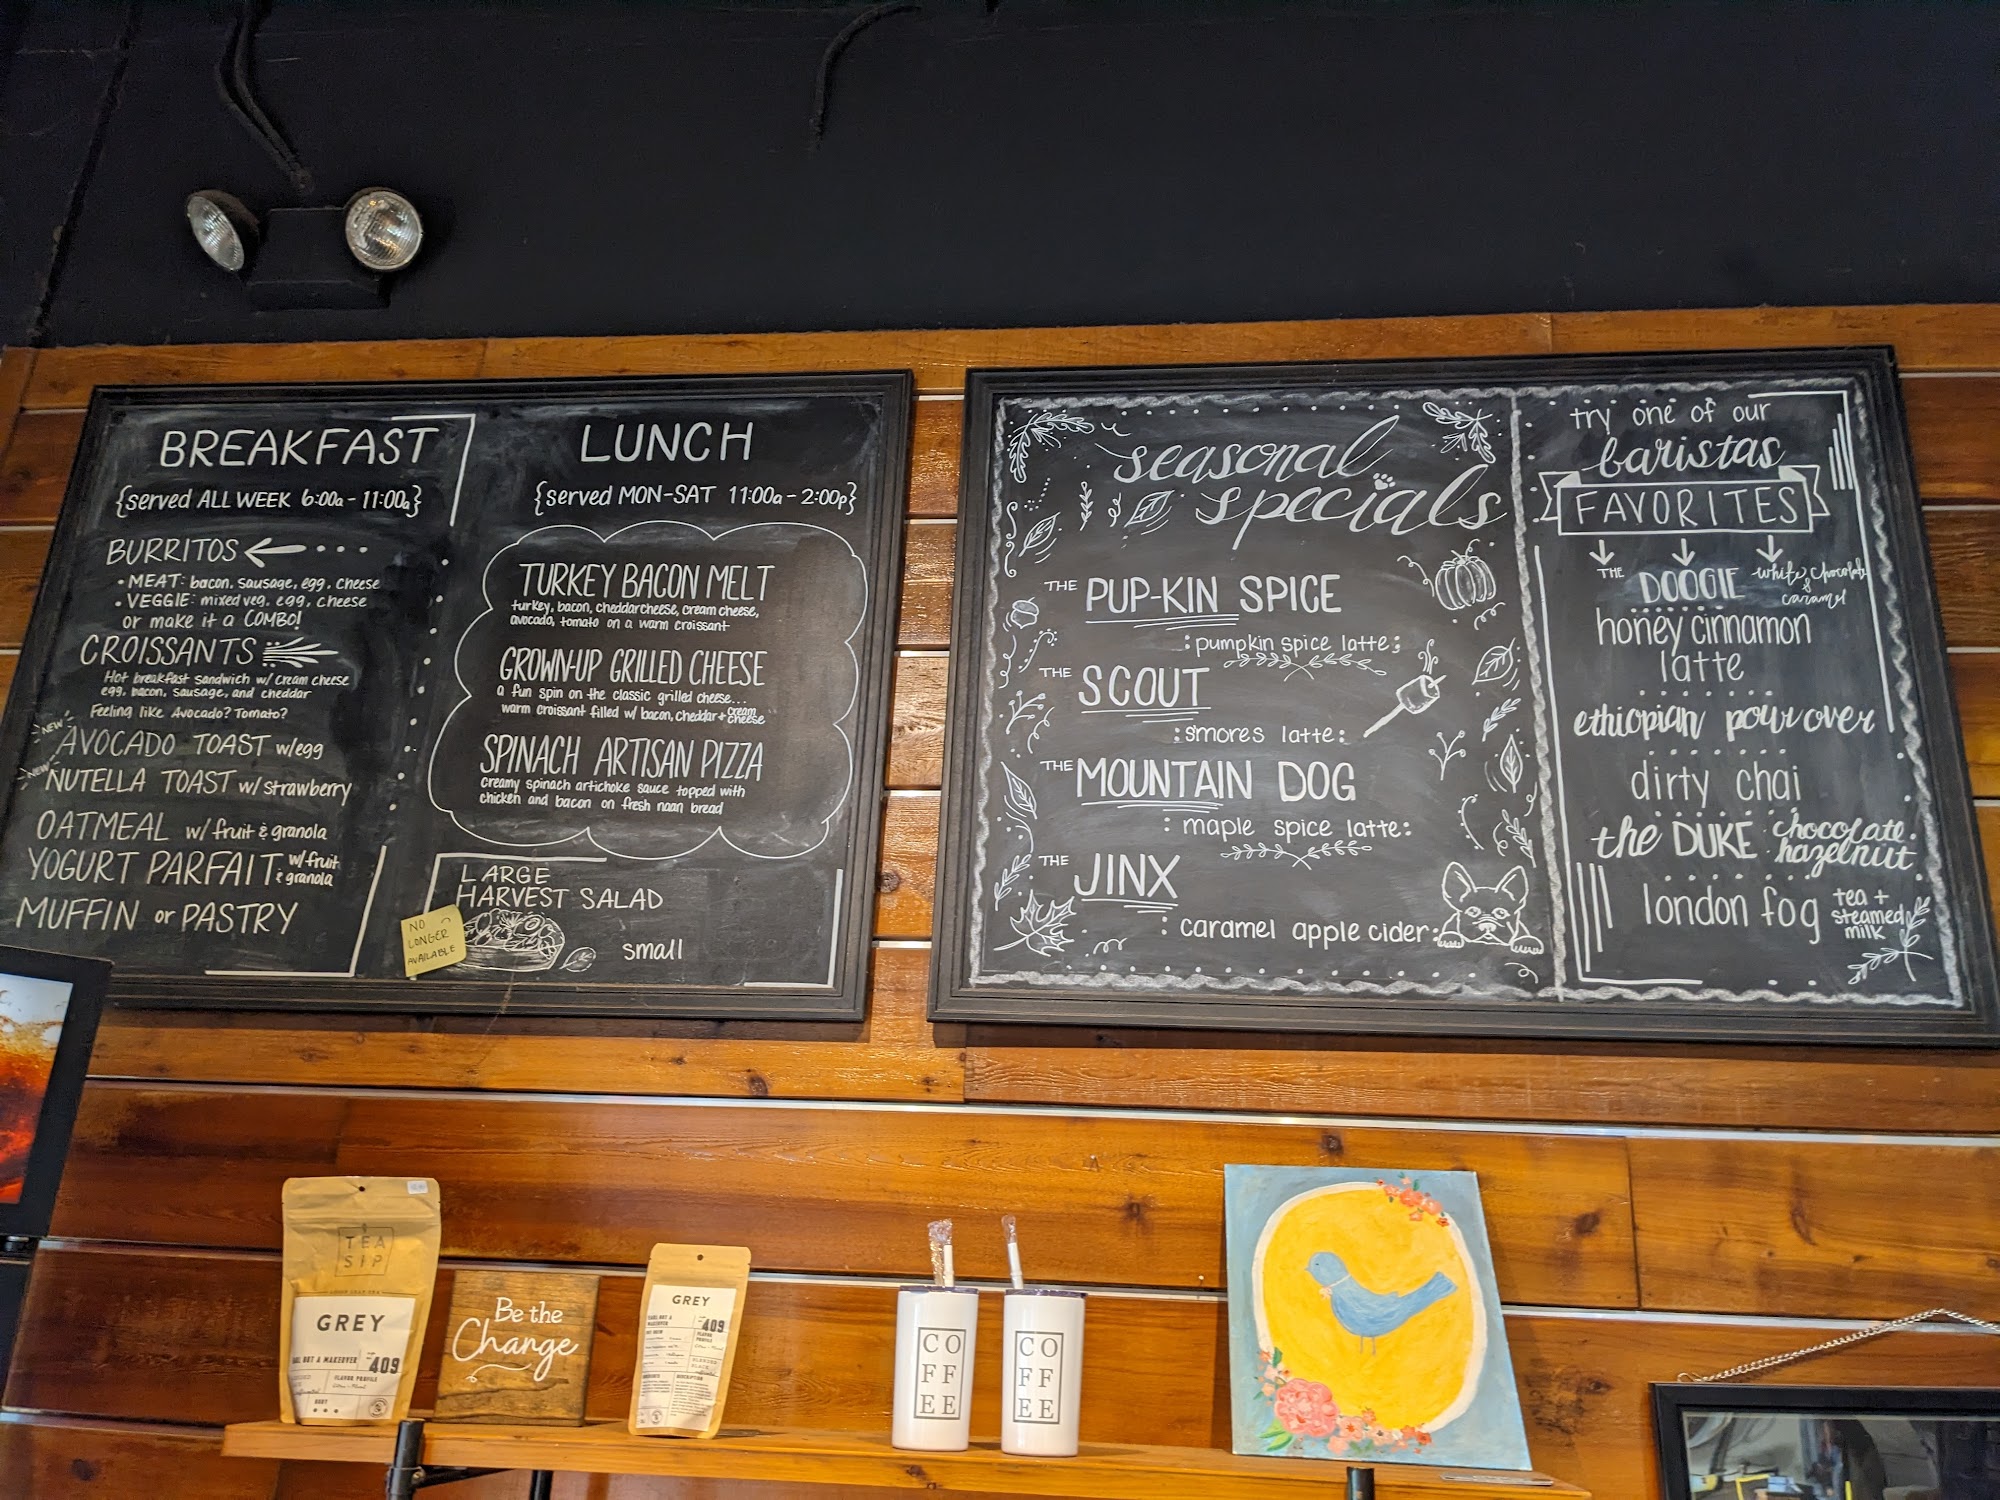 BREAKFAST
{served ALL WEEK 6:00a - 11:00a}
BURRITOS
• MEAT: bacon, sausage, egg, cheese
• VEGGIE: mixed veg, egg, cheese
or make it a COMBO!
CROISSANTS
Hot breakfast sandwich w/ cream cheese
egg, bacon, sausage, and cheddar
Feeling like Avocado? Tomato?
NEW
AVOCADO TOAST w/egg
NEW
NUTELLA TOAST w/ strawberry
OATMEAL w/ fruit & granola
YOGURT PARFAIT w/ fruit
& granola
MUFFIN or PASTRY
LUNCH
{served MON-SAT 11:00a - 2:00p}
TURKEY BACON MELT
turkey, bacon, cheddar cheese, cream cheese,
avocado, tomato on a warm croissant
GROWN-UP GRILLED CHEESE
a fun spin on the classic grilled cheese...
warm croissant filled w/ bacon, cheddar + cream
cheese
SPINACH ARTISAN PIZZA
creamy spinach artichoke sauce topped with
chicken and bacon on fresh naan bread
LARGE
HARVEST SALAD
small
NO
LONGER
AVAILABLE
seasonal
specials
THE PUP-KIN SPICE
:pumpkin spice latte:
THE SCOUT
:s'mores latte:
THE MOUNTAIN DOG
: maple spice latte:
THE JINX
: caramel apple cider:
try one of our
baristas
FAVORITES
THE DOOGIE white chocolate
&
caramel
honey cinnamon
latte
ethiopian pour over
dirty chai
the DUKE chocolate
hazelnut
london fog tea +
steamed
milk
TEA
SIP
GREY
409
FLAVOR PROFILE
BODY
Be the
Change
GREY
409
FLAVOR
PROFILE
CO
FF
EE
CO
FF
EE